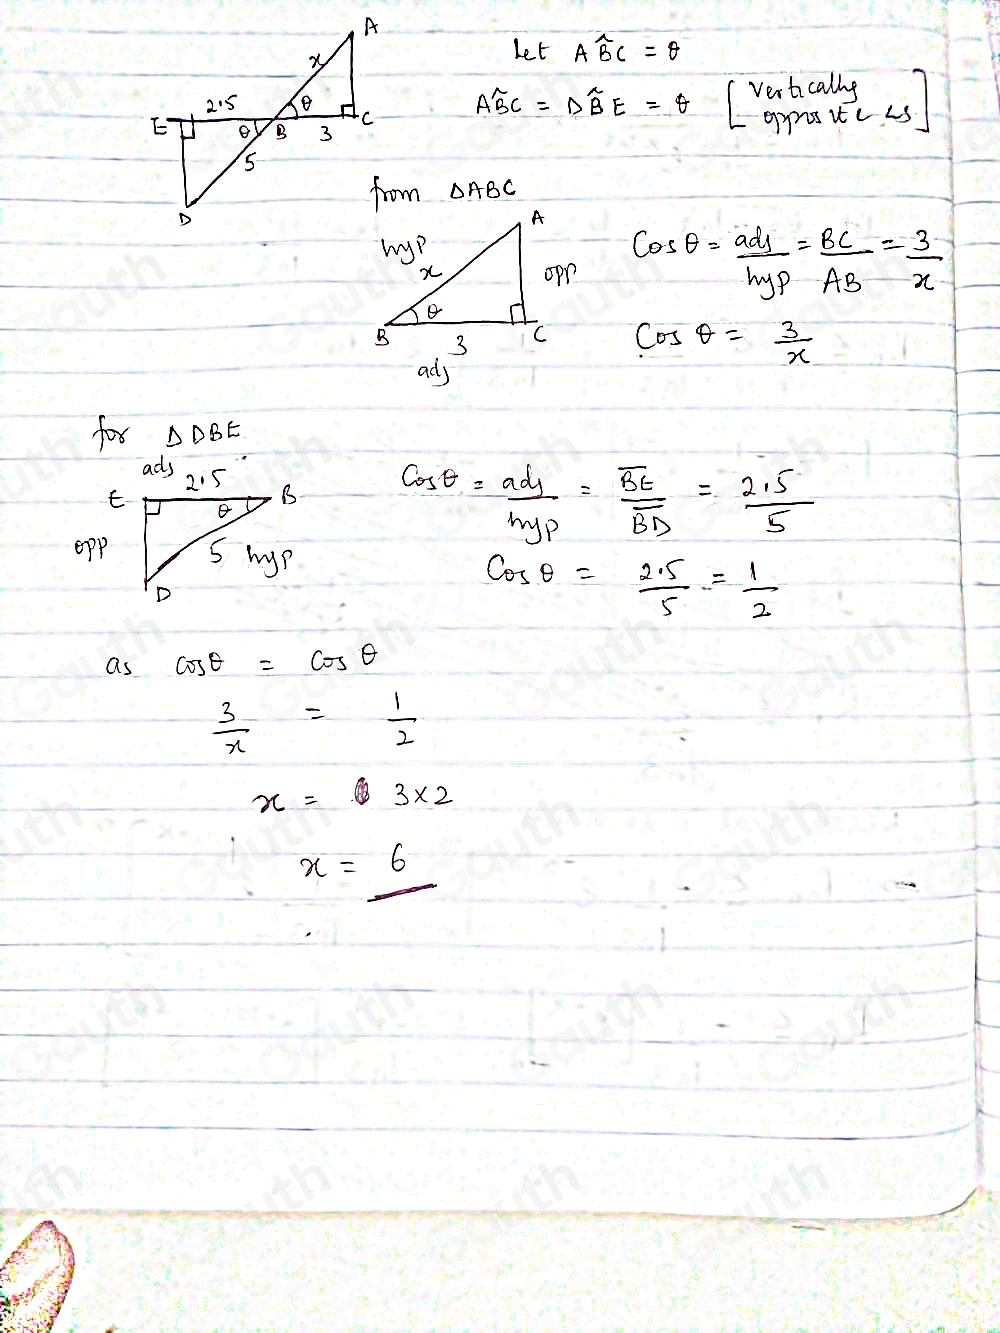 A
x
2.5
θ
E
θ
B
3
C
5
D
Let AB̂C = θ
AB̂C = DB̂E = θ [vertically opposite ∠s]
from ΔABC
A
hyp
x
opp
θ
B
3
C
adj
Cosθ = adj/hyp = BC/AB = 3/x
Cos θ = 3/x
for Δ DBE
adj
2.5
E
θ
B
opp
5 hyp
D
Cosθ = adj/hyp = BE/BD = 2.5/5
Cos θ = 2.5/5 = 1/2
as cosθ = cos θ
3/x = 1/2
x = 3×2
x = 6
Gauth